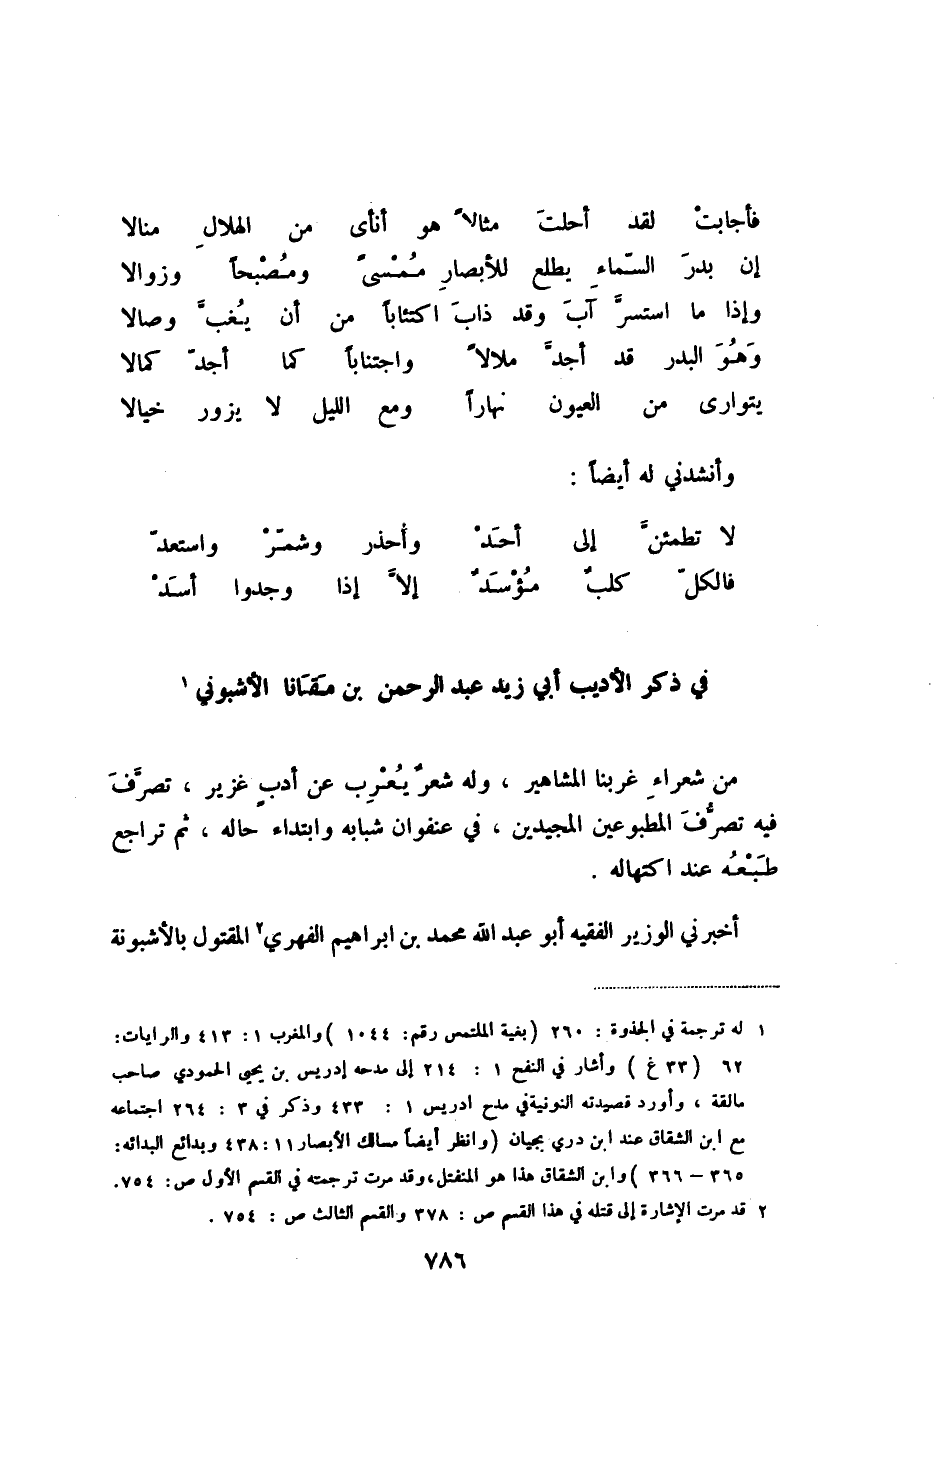 فأجابتْ لقد أحلتَ مثالاً هو أنأى من الهلالِ منالا
إن بدرَ السّماءِ يطلع للأبصارِ مُمْسىً ومُصْبحاً وزوالا
وإذا ما استسرَّ آبَ وقد ذابَ اكتئاباً من أن يُغبَّ وصالا
وَهُوَ البدر قد أجدَّ ملالاً واجتناباً كما أجدّ كمالا
يتوارى من العيون نهاراً ومع الليل لا يزور خيالا
وأنشدني له أيضاً :
لا تطمئنَّ إلى أحَدْ وأحذر وشمّرْ واستعدّ
فالكلّ كلبٌ مُؤْسَدٌ إلاَّ إذا وجدوا أسَدْ
في ذكر الأديب أبي زيد عبد الرحمن بن مَقَانا الأشبوني ١
من شعراءِ غربنا المشاهير ، وله شعرٌ يُعْرِب عن أدبٍ غزير ، تصرَّفَ
فيه تصرُّفَ المطبوعين المجيدين ، في عنفوان شبابه وابتداء حاله ، ثم تراجع
طَبْعُه عند اكتهاله .
أخبرني الوزير الفقيه أبو عبد الله محمد بن ابراهيم الفهري٢ المقتول بالأشبونة
١ له ترجمة في الجذوة : ٢٦٠ (بغية الملتمس رقم: ١٠٤٤ ) والمغرب ١ : ٤١٣ والرايات:
٦٢ (٣٣ غ ) وأشار في النفح ١ : ٢١٤ إلى مدحه إدريس بن يحيى الحمودي صاحب
مالقة ، وأورد قصيدته النونية في مدح ادريس ١ : ٤٣٣ وذكر في ٣ : ٢٦٤ اجتماعه
مع ابن الشقاق عند ابن دري بجيان (وانظر أيضاً مسالك الأبصار ١١ : ٤٣٨ وبدائع البدائه:
٣٦٥ – ٣٦٦ ) وابن الشقاق هذا هو المنفتل، وقد مرت ترجمته في القسم الأول ص: ٧٥٤.
٢ قد مرت الإشارة إلى قتله في هذا القسم ص : ٣٧٨ والقسم الثالث ص : ٧٥٤ .
٧٨٦